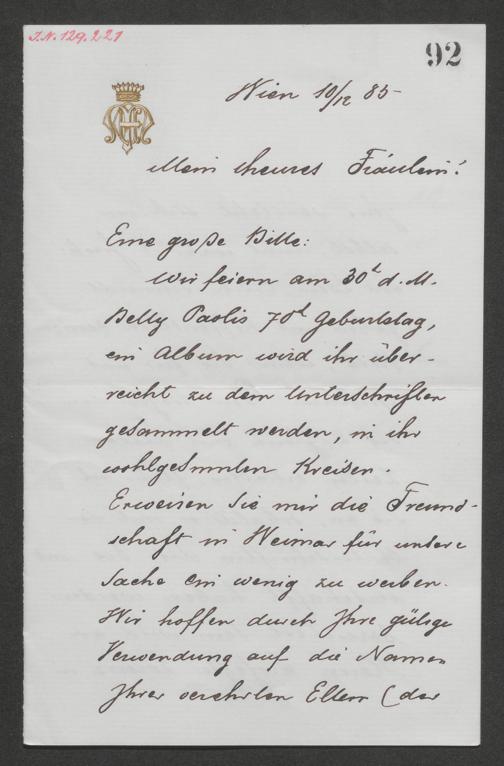 J.N. 129.221
92
Wien 10/12 85
Mein theures Fräulein!
Eine große Bitte:
Wir feiern am 30t d. M.
Betty Paolis 70t Geburtstag,
ein Album wird ihr über-
reicht zu dem Unterschriften
gesammelt werden, in ihr
wohlgesinnten Kreisen.
Erweisen Sie mir die Freund-
schaft in Weimar für unsere
Sache ein wenig zu werben.
Wir hoffen durch Ihre gütige
Verwendung auf die Namen
Ihrer verehrten Eltern (der